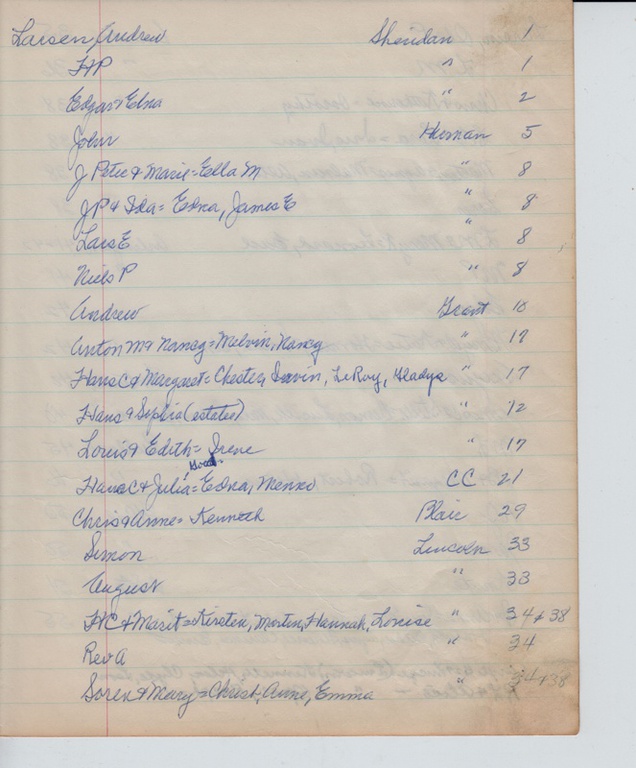 Larsen, Andrew Sheridan 1
HP " 1
Edgar & Edna " 2
John Herman 5
J Peter & Marie = Ella M " 8
JP & Ida = Edna, James E " 8
Lars E " 8
Niels P " 8
Andrew Grant 10
Anton M & Nancy = Melvin, Nancy " 17
Hans C & Margaret = Chester, Irvin, LeRoy, Gladys " 17
Hans & Sophia (estates) " 12
Louis & Edith = Irene " 17
Hans C & Julia = Edna, Menko CC 21
Chris & Anne = Kenneth Blair 29
Simon Lincoln 33
August " 33
HC & Marit = Kirsten, Marten, Hannah, Louise " 34 & 38
Rev A " 34
Soren & Mary = Christ, Anne, Emma " 34 & 38